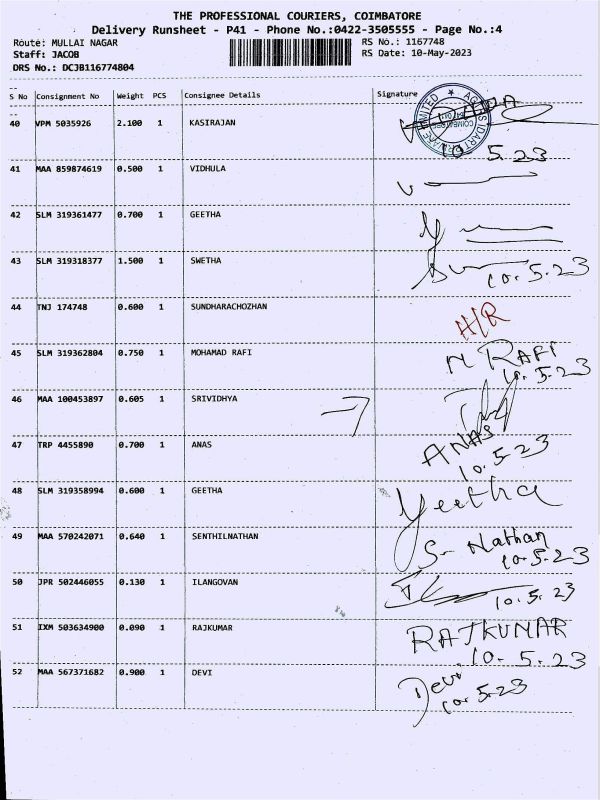 THE PROFESSIONAL COURIERS, COIMBATORE
Delivery Runsheet - P41 - Phone No.:0422-3505555 - Page No.:4
Route: MULLAI NAGAR RS No.: 1167748
Staff: JACOB RS Date: 10-May-2023
DRS No.: DCJB116774804
S No Consignment No Weight PCS Consignee Details Signature
40 VPM 5035926 2.100 1 KASIRAJAN
10 5.23
41 MAA 859874619 0.500 1 VIDHULA
42 SLM 319361477 0.700 1 GEETHA
43 SLM 319318377 1.500 1 SWETHA
10.5.23
44 TNJ 174748 0.600 1 SUNDHARACHOZHAN H/R
45 SLM 319362804 0.750 1 MOHAMAD RAFI M RAFI
10.5.23
46 MAA 100453897 0.605 1 SRIVIDHYA
47 TRP 4455890 0.700 1 ANAS ANAS
10.5.23
48 SLM 319358994 0.600 1 GEETHA Geetha
49 MAA 570242071 0.640 1 SENTHILNATHAN S- Nathan
10.5.23
50 JPR 502446055 0.130 1 ILANGOVAN
10.5.23
51 IXM 503634900 0.090 1 RAJKUMAR RAJKUMAR
10.5.23
52 MAA 567371682 0.900 1 DEVI Devi
10.5.23